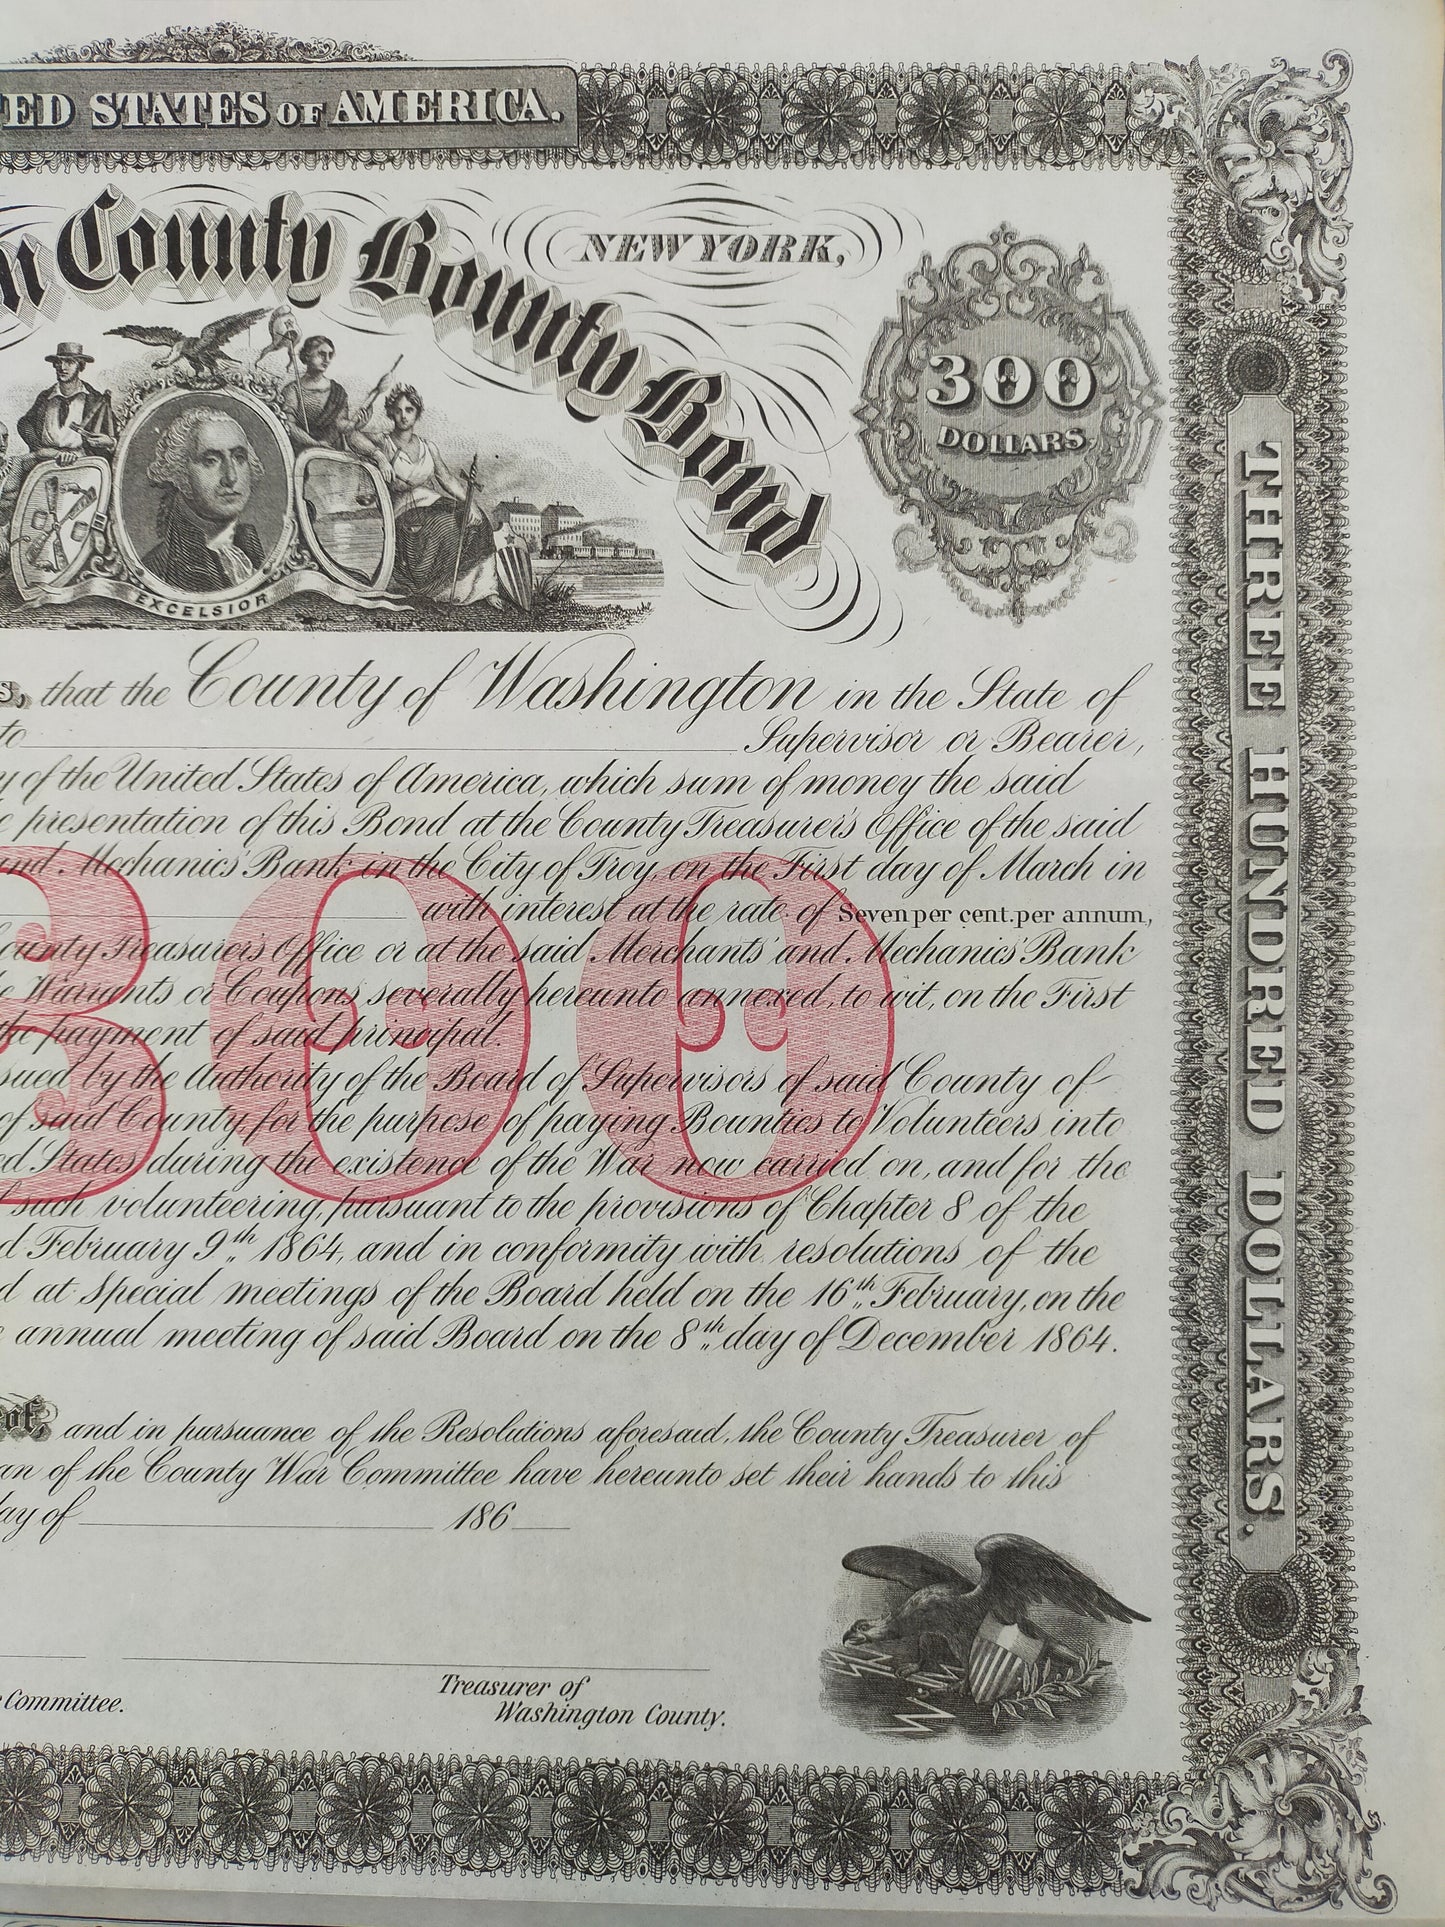 ED STATES OF AMERICA.
n County Bounty Bond
NEW YORK,
300
DOLLARS
EXCELSIOR
THREE HUNDRED DOLLARS.
s, that the County of Washington in the State of
to Supervisor or Bearer,
y of the United States of America, which sum of money the said
e presentation of this Bond at the County Treasurer's Office of the said
and Mechanics' Bank in the City of Troy, on the First day of March in
with interest at the rate of Seven per cent. per annum,
ounty Treasurer's Office or at the said Merchants' and Mechanics' Bank
e Warrants or Coupons severally hereunto annexed, to wit, on the First
the payment of said principal.
sued by the Authority of the Board of Supervisors of said County of
of said County, for the purpose of paying Bounties to Volunteers into
ed States during the existence of the War now carried on, and for the
f such volunteering, pursuant to the provisions of Chapter 8 of the
d February 9th 1864, and in conformity with resolutions of the
d at Special meetings of the Board held on the 16th February, on the
e annual meeting of said Board on the 8th day of December 1864.
300
eof, and in pursuance of the Resolutions aforesaid, the County Treasurer of
an of the County War Committee have hereunto set their hands to this
day of 186
r Committee.
Treasurer of
Washington County.